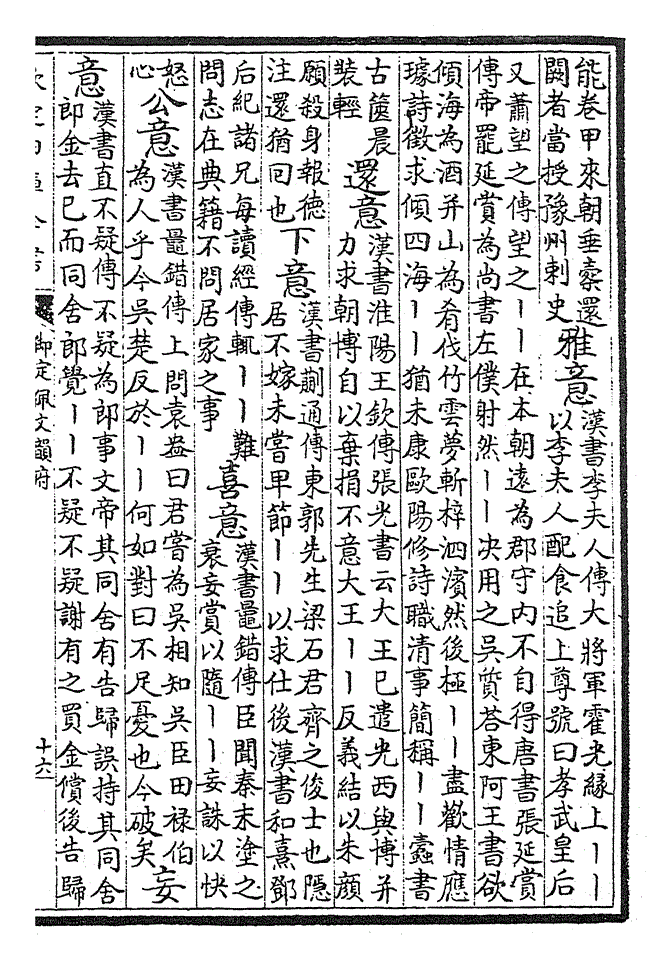 能卷甲來朝垂橐還
闕者當授豫州刺史
雅意
漢書李夫人傳大將軍霍光緣上丨丨
以李夫人配食追上尊號曰孝武皇后
又蕭望之傳望之丨丨在本朝遠為郡守內不自得唐書張延賞
傳帝罷延賞為尚書左僕射然丨丨决用之吳質荅東阿王書欲
傾海為酒并山為肴伐竹雲夢斬梓泗濱然後極丨丨盡歡情應
璩詩徵求傾四海丨丨猶未康歐陽修詩職清事簡稱丨丨蠹書
古篋晨
裝輕
還意
漢書淮陽王欽傳張光書云大王已遣光西與博并
力求朝博自以棄捐不意大王丨丨反義結以朱顔
願殺身報德
注還猶回也
下意
漢書蒯通傳東郭先生梁石君齊之俊士也隱
居不嫁未嘗卑節丨丨以求仕後漢書和熹鄧
后紀諸兄每讀經傳輒丨丨難
問志在典籍不問居家之事
喜意
漢書鼂錯傳臣聞秦末塗之
衰妄賞以隨丨丨妄誅以快
怒
心
公意
漢書鼂錯傳上問袁盎曰君嘗為吳相知吳臣田禄伯
為人乎今吳楚反於丨丨何如對曰不足憂也今破矣
妄
意
漢書直不疑傳不疑為郎事文帝其同舍有告歸誤持其同舍
郎金去已而同舍郎覺丨丨不疑不疑謝有之買金償後告歸
欽定四庫全書
御定佩文韻府
十六